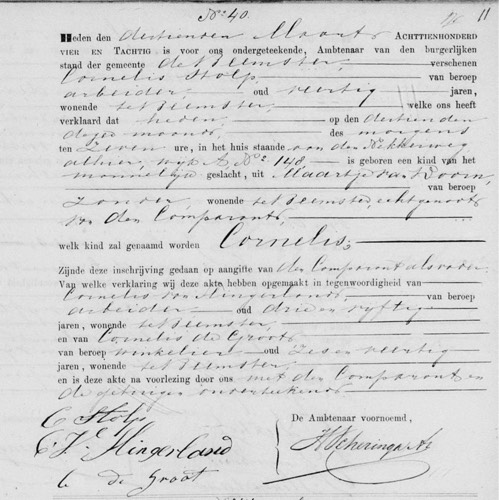 No 40.
11
Heden den dertienden Maart ACHTTIENHONDERD
VIER EN TACHTIG is voor ons ondergeteekende, Ambtenaar van den burgerlijken
stand der gemeente de Beemster, verschenen
Cornelis Stolp, van beroep
arbeider, oud veertig jaren,
wonende te Beemster, welke ons heeft
verklaard dat heden, op den dertienden
dezer maand, des morgens
ten zeven ure, in het huis staande aan den Nekkerweg
alhier, wijk A No 148, is geboren een kind van het
mannelijk geslacht, uit Maartje van Doorn,
van beroep
zonder, wonende te Beemster, echtgenoote
van den Comparant,
welk kind zal genaamd worden Cornelis,
Zijnde deze inschrijving gedaan op aangifte van den Comparant als vader
Van welke verklaring wij deze akte hebben opgemaakt in tegenwoordigheid van
Cornelis van Slingerland van beroep
arbeider oud drie en vijftig
jaren, wonende te Beemster,
en van Cornelis de Groot
van beroep winkelier oud zes en veertig
jaren, wonende te Beemster
en is deze akte na voorlezing door ons met den Comparant en
de getuigen onderteekend.
C Stolp
De Ambtenaar voornoemd,
C V Slingerland
C de Groot